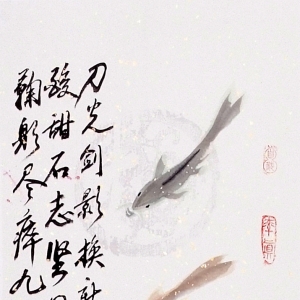 刀光剑影换新
酸甜石志坚
鞠躬尽瘁九